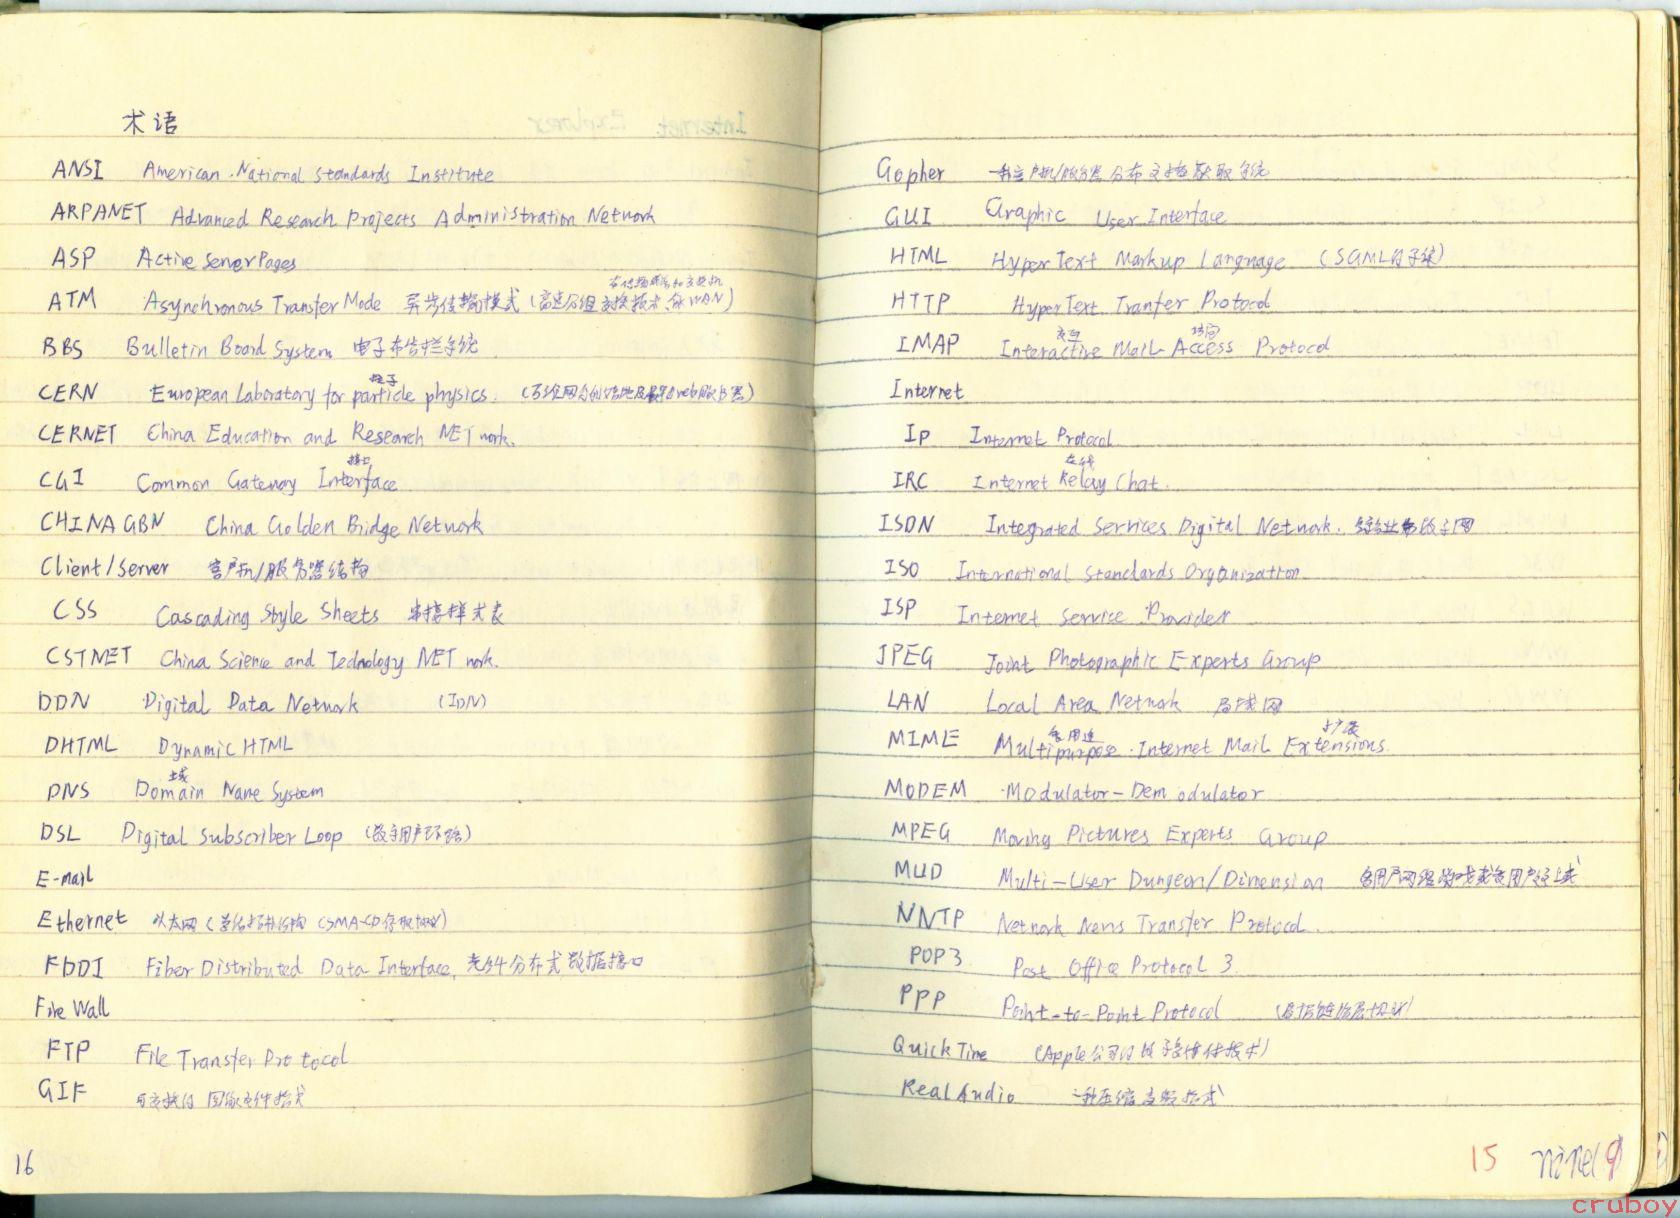 术语
ANSI American National Standards Institute
ARPANET Advanced Research Projects Administration Network
ASP Active Server Pages
ATM Asynchronous Transfer Mode 异步传输模式 (高速分组交换技术, WAN)
BBS Bulletin Board System 电子布告栏系统
粒子
CERN European Laboratory for particle physics. (万维网 Web服务器)
CERNET China Education and Research NETwork.
接口
CGI Common Gateway Interface
CHINAGBN China Golden Bridge Network
Client/Server 客户机/服务器结构
CSS Cascading Style Sheets 串接样式表
CSTNET China Science and Technology NETwork.
DDN Digital Data Network (IDN)
DHTML Dynamic HTML
域
DNS Domain Name System
DSL Digital Subscriber Loop (数字用户环路)
E-mail
Ethernet 以太网 (总线拓扑结构 CSMA-CD存取协议)
FDDI Fiber Distributed Data Interface, 光纤分布式数据接口
Fire Wall
FTP File Transfer Protocol
GIF 可交换的图象文件格式
16
Gopher 一种客户机/服务器分布文档获取系统
GUI Graphic User Interface
HTML HyperText Markup Language (SGML的子集)
HTTP HyperText Tranfer Protocol
交互 访问
IMAP Interactive Mail Access Protocol
Internet
Ip Internet Protocol
在线
IRC Internet Relay Chat.
ISDN Integrated Services Digital Network. 综合业务数字网
ISO International Standards Organization
ISP Internet Service Provider
JPEG Joint Photographic Experts Group
LAN Local Area Network 局域网
多用途 扩展
MIME Multipurpose Internet Mail Extensions.
MODEM Modulator-Demodulator
MPEG Moving Pictures Experts Group
MUD Multi-User Dungeon/Dimension 多用户网络游戏或多用户
NNTP Network News Transfer Protocol.
POP3 Post Office Protocol 3
PPP Point-to-Point Protocol (数据链路层协议)
QuickTime (Apple公司的数字多媒体技术)
RealAudio 一种压缩音频格式
15
cruboy